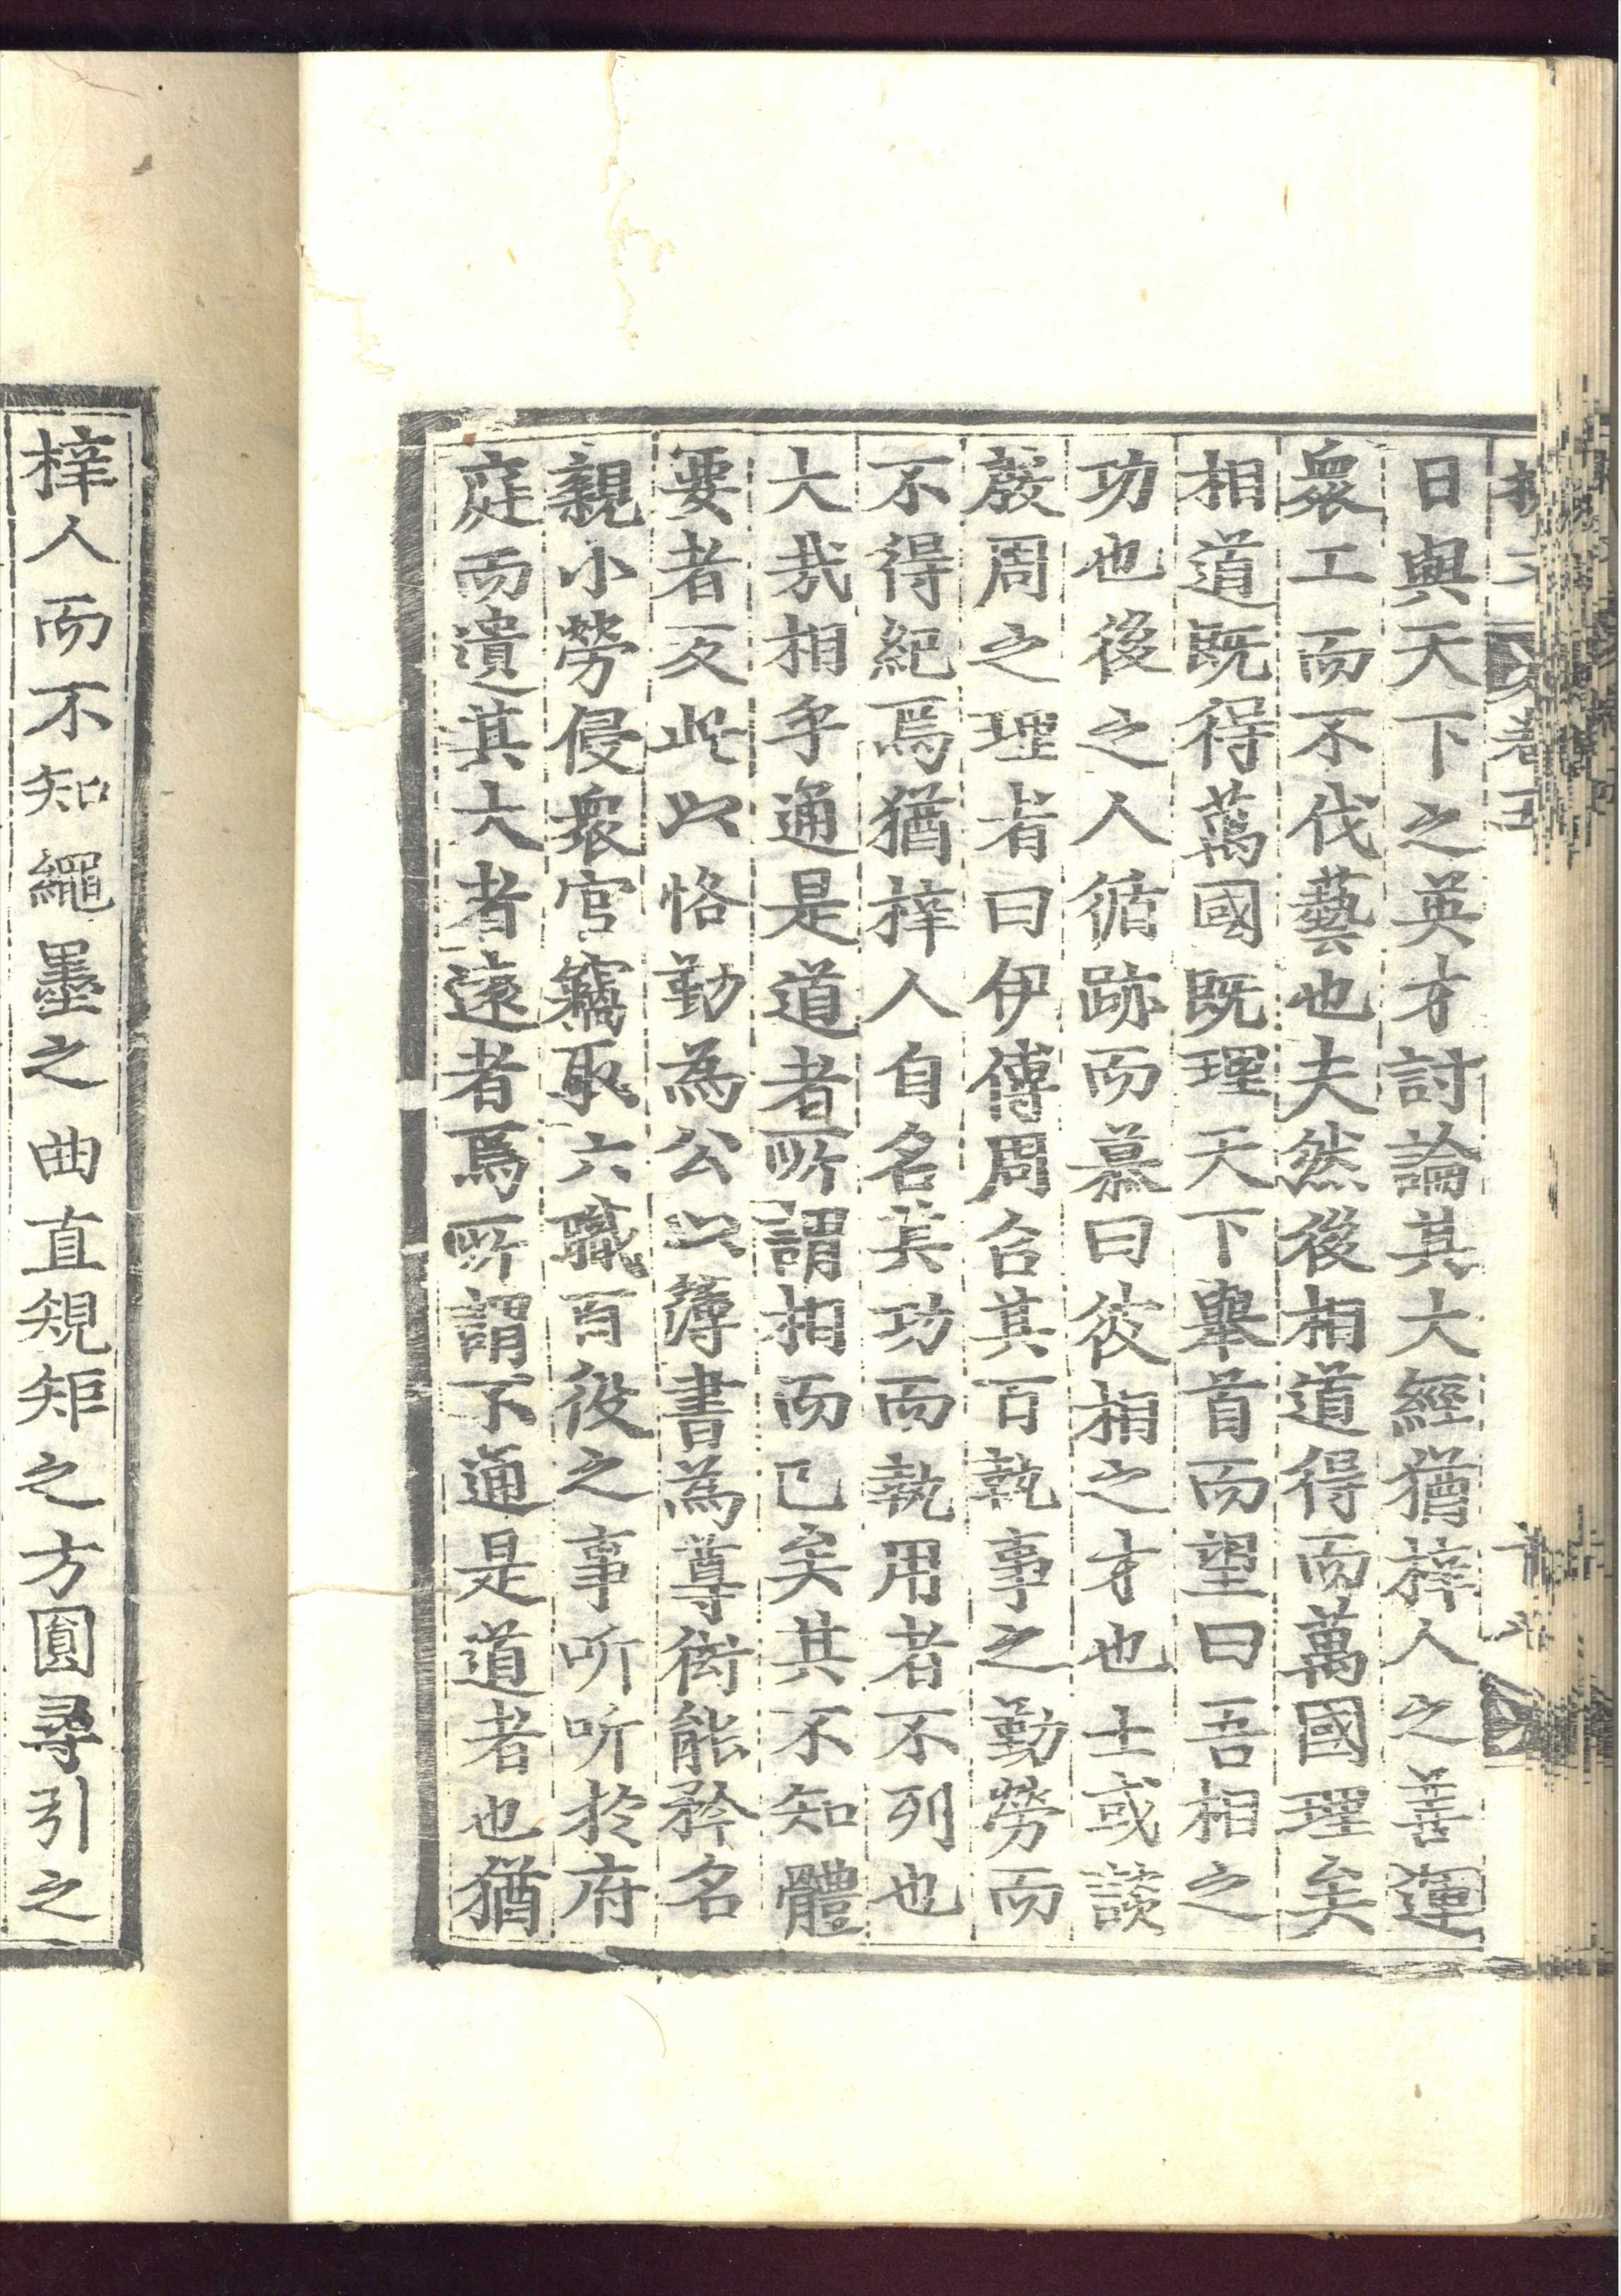 日與天下之英才討論其大經猶梓人之善運
衆工而不伐藝也夫然後相道得而萬國理矣
相道既得萬國既理天下擧首而望曰吾相之
功也後之人循跡而慕曰彼相之才也士或談
殷周之理者曰伊傅周召其百執事之勤勞而
不得紀焉猶梓人自名其功而執用者不列也
大哉相乎通是道者所謂相而已矣其不知體
要者反此以恪勤為公以簿書為尊衒能矜名
親小勞侵衆官竊取六職百役之事听听於府
庭而遺其大者遠者焉所謂不通是道者也猶
梓人而不知繩墨之曲直規矩之方圓尋引之